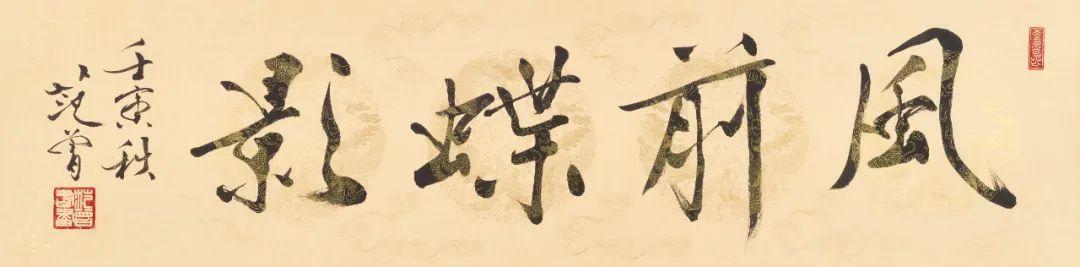 風前蝶影
壬寅秋
范曾